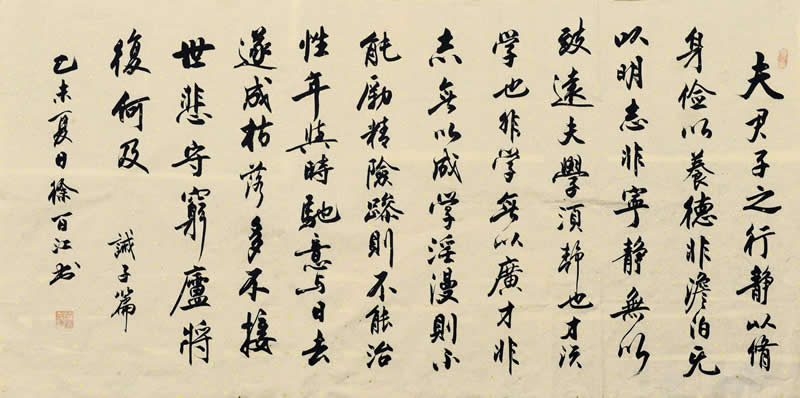 夫君子之行静以脩
身俭以養德非澹泊无
以明志非寧静無以
致遠夫學須静也才须
学也非学無以廣才非
志無以成学淫漫則不
能勵精險躁則不能治
性年與時馳意与日去
遂成枯落多不接
世悲守窮廬將
復何及
誡子篇
乙未夏日徐百江书